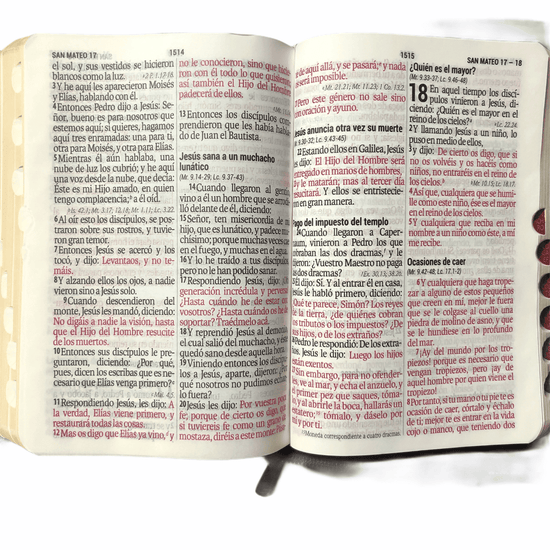 SAN MATEO 17
1514
el sol, y sus vestidos se hicieron
blancos como la luz.
3 Y he aquí les aparecieron Moisés
y Elías, hablando con él.
4 Entonces Pedro dijo a Jesús: Se-
ñor, bueno es para nosotros que
estemos aquí; si quieres, hagamos
aquí tres enramadas: una para ti,
otra para Moisés, y otra para Elías.
5 Mientras él aún hablaba, una
nube de luz los cubrió; y he aquí
una voz desde la nube, que decía:
Éste es mi Hijo amado, en quien
tengo complacencia; a él oíd.
6 Al oír esto los discípulos, se pos-
traron sobre sus rostros, y tuvie-
ron gran temor.
7 Entonces Jesús se acercó y los
tocó, y dijo: Levantaos, y no te-
máis.
8 Y alzando ellos los ojos, a nadie
vieron sino a Jesús solo.
9 Cuando descendieron del
monte, Jesús les mandó, diciendo:
No digáis a nadie la visión, hasta
que el Hijo del Hombre resucite
de los muertos.
10 Entonces sus discípulos le pre-
guntaron, diciendo: ¿Por qué,
pues, dicen los escribas que es ne-
cesario que Elías venga primero?
11 Respondiendo Jesús, les dijo: A
la verdad, Elías viene primero, y
restaurará todas las cosas.
12 Mas os digo que Elías ya vino, y
no le conocieron, sino que hicie-
ron con él todo lo que quisieron;
así también el Hijo del Hombre
padecerá de ellos.
13 Entonces los discípulos com-
prendieron que les había habla-
do de Juan el Bautista.
Jesús sana a un muchacho
lunático
(Mr. 9.14-29; Lc. 9.37-43)
14 Cuando llegaron al gentío,
vino a él un hombre que se arrodi-
lló delante de él, diciendo:
15 Señor, ten misericordia de mi
hijo, que es lunático, y padece mu-
chísimo; porque muchas veces cae
en el fuego, y muchas en el agua.
16 Y lo he traído a tus discípulos,
pero no le han podido sanar.
17 Respondiendo Jesús, dijo: ¡Oh
generación incrédula y perversa!
¿Hasta cuándo he de estar con
vosotros? ¿Hasta cuándo os he de
soportar? Traédmelo acá.
18 Y reprendió Jesús al demonio,
el cual salió del muchacho, y éste
quedó sano desde aquella hora.
19 Viniendo entonces los discípulos
a Jesús, aparte, dijeron: ¿Por
qué nosotros no pudimos echarlo
fuera?
20 Jesús les dijo: Por vuestra poca
fe; porque de cierto os digo, que
si tuviereis fe como un grano de
mostaza, diréis a este monte: Pása-
1515
SAN MATEO 17 – 18
te de aquí allá, y se pasará; y nada
os será imposible.
21 Pero este género no sale sino
con oración y ayuno.
Jesús anuncia otra vez su muerte
(Mr. 9.30-32; Lc. 9.43-45)
22 Estando ellos en Galilea, Jesús
les dijo: El Hijo del Hombre será
entregado en manos de hombres,
23 y le matarán; mas al tercer día
resucitará. Y ellos se entristecie-
ron en gran manera.
Pago del impuesto del templo
24 Cuando llegaron a Caper-
naum, vinieron a Pedro los que
cobraban las dos dracmas, y le
dijeron: ¿Vuestro Maestro no paga
las dos dracmas?
25 Él dijo: Sí. Y al entrar él en casa,
Jesús le habló primero, diciendo:
¿Qué te parece, Simón? Los reyes
de la tierra, ¿de quiénes cobran
los tributos o los impuestos? ¿De
sus hijos, o de los extraños?
26 Pedro le respondió: De los extra-
ños. Jesús le dijo: Luego los hijos
están exentos.
27 Sin embargo, para no ofender-
les, ve al mar, y echa el anzuelo, y
el primer pez que saques, tóma-
lo, y al abrirle la boca, hallarás un
estatero; tómalo, y dáselo por
mí y por ti.
Moneda correspondiente a cuatro dracmas.
¿Quién es el mayor?
(Mr. 9.33-37; Lc. 9.46-48)
18 En aquel tiempo los discí-
pulos vinieron a Jesús, di-
ciendo: ¿Quién es el mayor en el
reino de los cielos?
2 Y llamando Jesús a un niño, lo
puso en medio de ellos,
3 y dijo: De cierto os digo, que si
no os volvéis y os hacéis como
niños, no entraréis en el reino de
los cielos.
4 Así que, cualquiera que se humi-
lle como este niño, ése es el mayor
en el reino de los cielos.
5 Y cualquiera que reciba en mi
nombre a un niño como éste, a mí
me recibe.
Ocasiones de caer
(Mr. 9.42-48; Lc. 17.1-2)
6 Y cualquiera que haga trope-
zar a alguno de estos pequeños
que creen en mí, mejor le fuera
que se le colgase al cuello una
piedra de molino de asno, y que
se le hundiese en lo profundo
del mar.
7 ¡Ay del mundo por los tro-
piezos! porque es necesario que
vengan tropiezos, pero ¡ay de
aquel hombre por quien viene el
tropiezo!
8 Por tanto, si tu mano o tu pie te es
ocasión de caer, córtalo y échalo
de ti; mejor te es entrar en la vida
cojo o manco, que teniendo dos